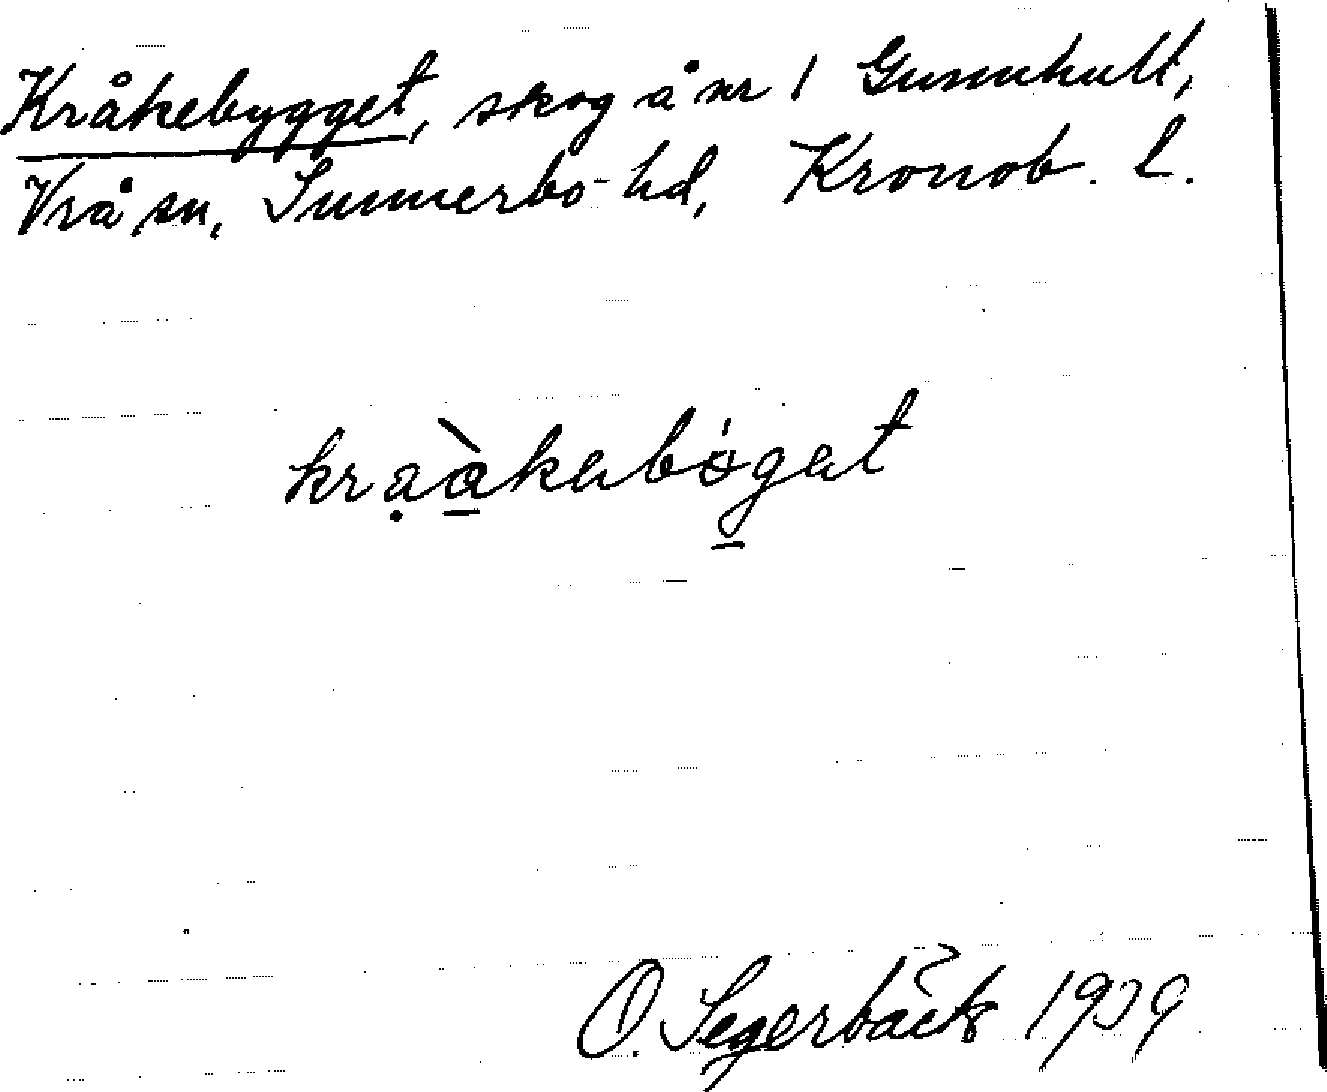 Kråkebygget, skog å nr 1 Gunnhult,
Vrå sn, Sunnerbo hd, Kronob. l.
O. Segerbäck 1939